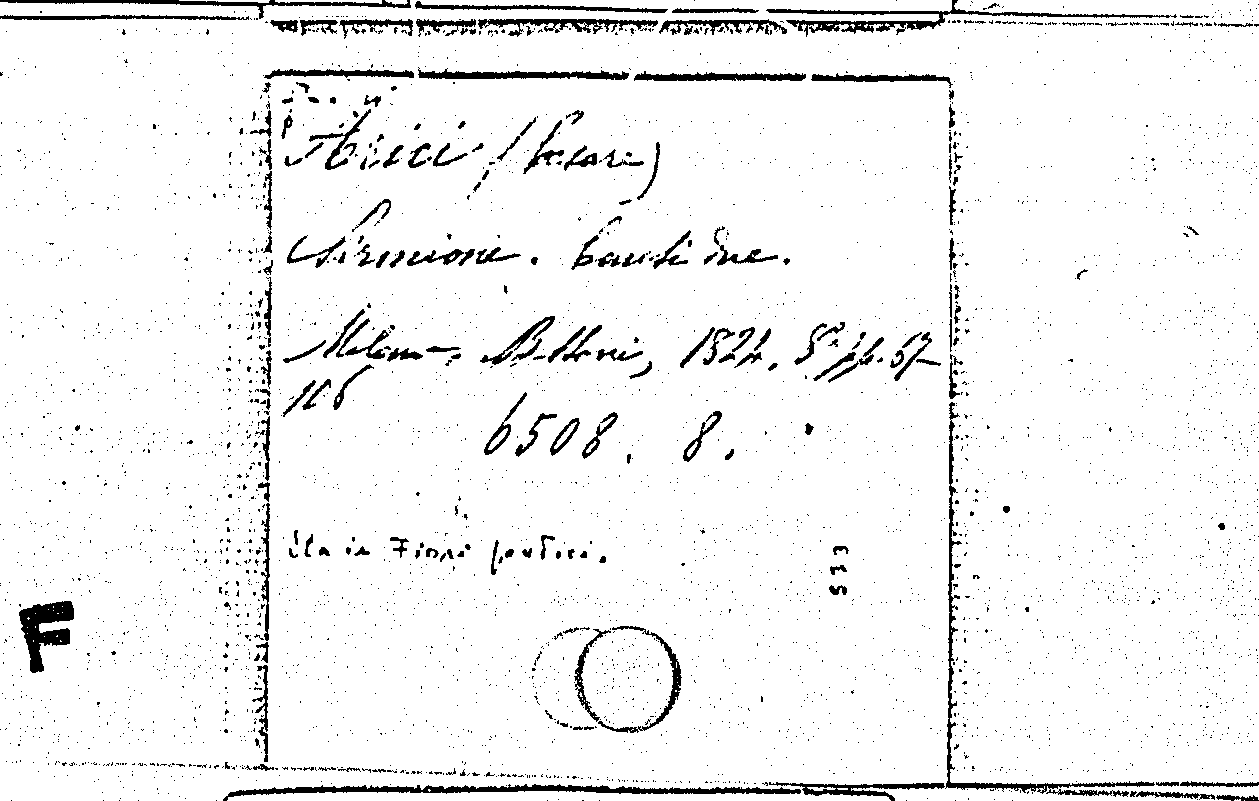 Arici (Cesare)
Sirmione. Canti due.
Milano, Bettoni, 1822. 8° pp. 67-
106
6508. 8.
Sta in Fiori poetici.
533
F